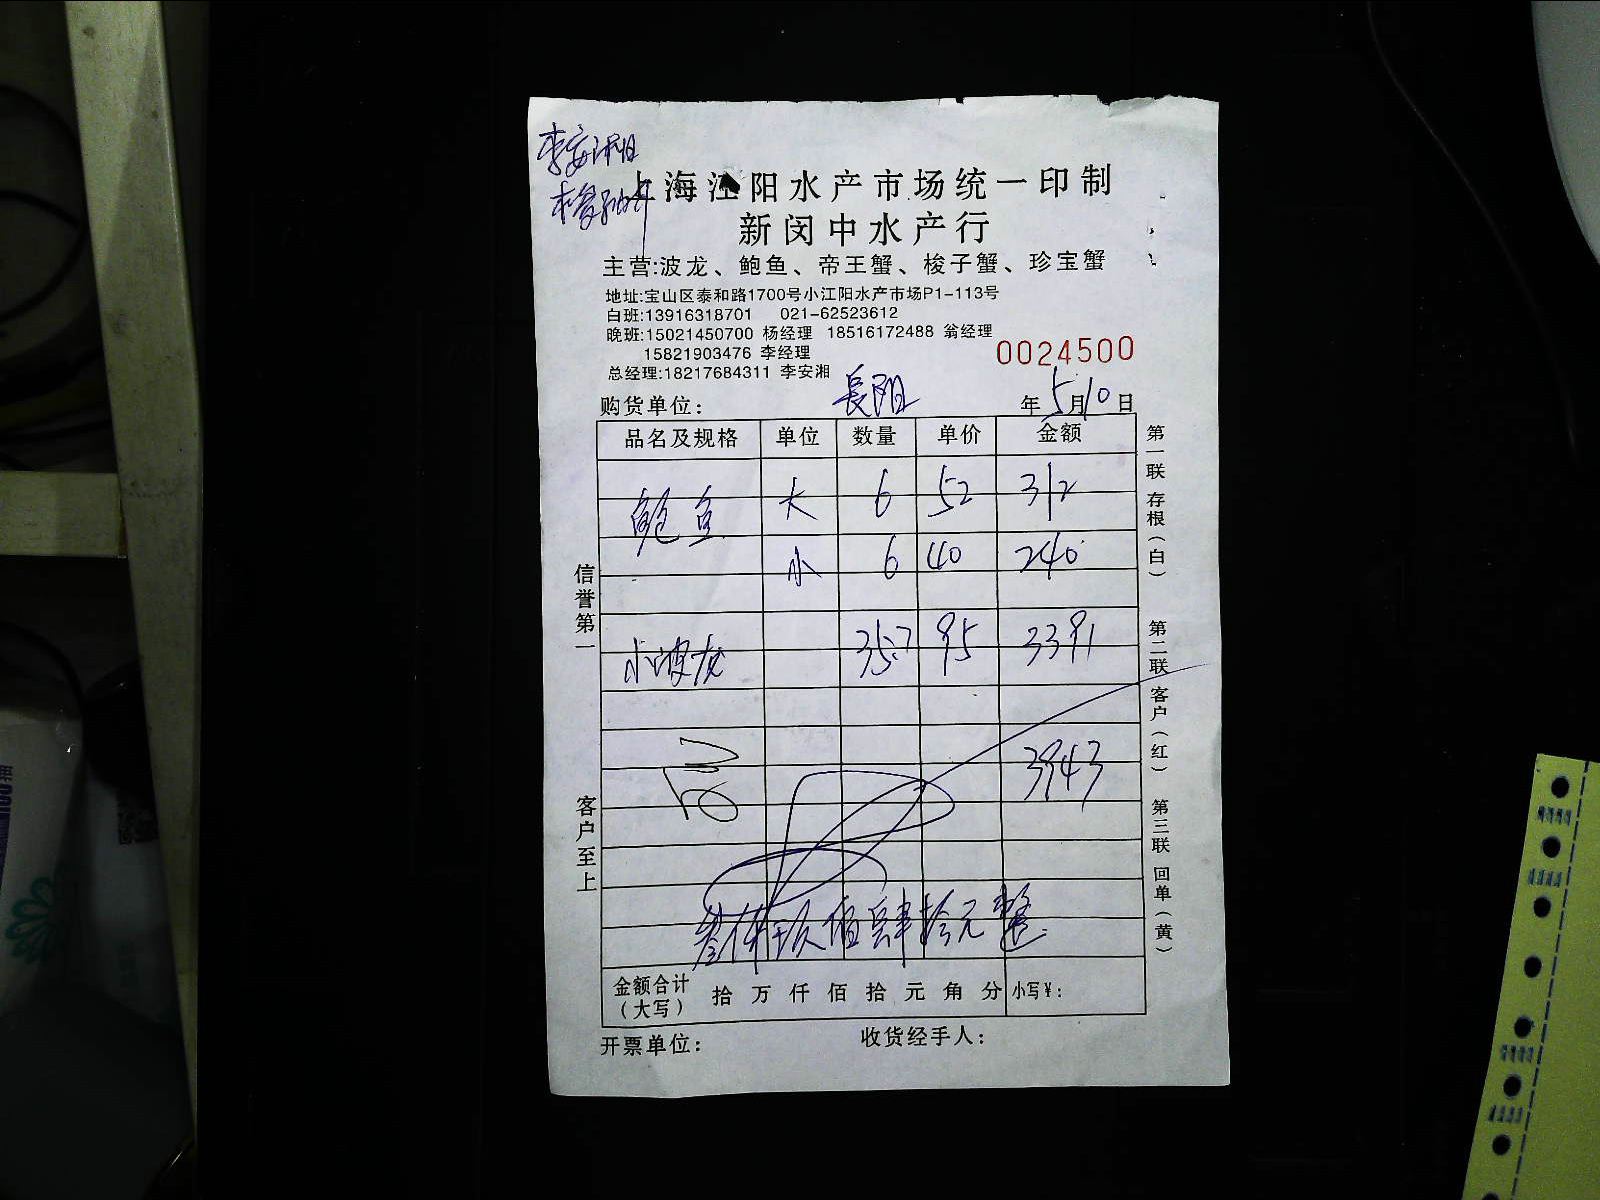 李安湘
上海江阳水产市场统一印制
新闵中水产行
主营:波龙、鲍鱼、帝王蟹、梭子蟹、珍宝蟹
地址:宝山区泰和路1700号小江阳水产市场P1-113号
白班:13916318701 021-62523612
晚班:15021450700 杨经理 18516172488 翁经理
15821903476 李经理
0024500
总经理:18217684311 李安湘
购货单位: 長阳 年 5 月 10 日
品名及规格 单位 数量 单价 金额
鲍鱼 大 6 52 312
小 6 40 240
小波龙 35.7 95 3391
3943
叁仟玖佰肆拾元整
金额合计(大写) 拾 万 仟 佰 拾 元 角 分 小写¥:
开票单位: 收货经手人:
信誉第一 客户至上
第一联 存根(白) 第二联 客户(红) 第三联 回单(黄)